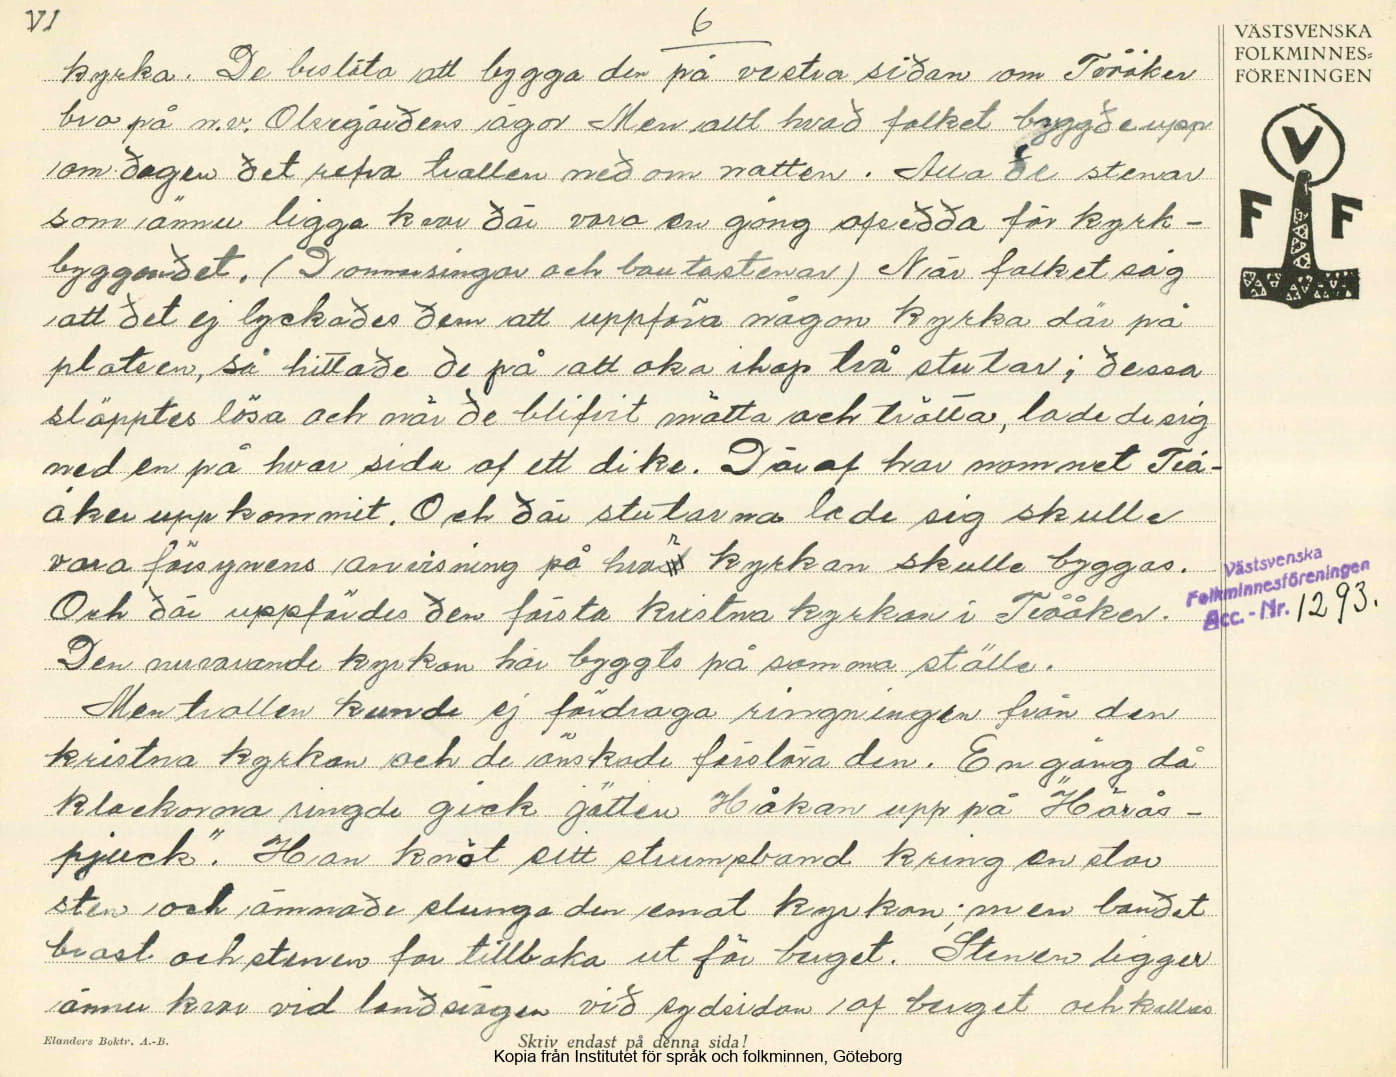 VI
6
kyrka. De beslöto att bygga den på vestra sidan om Tvååker
bro på n.v. Olsegårdens ägor Men allt hvad folket byggde upp
om dagen det refvo trollen ned om natten. Alla de stenar
som ännu ligga kvar där voro en gång afsedda för kyrk-
byggandet. (Domarringar och bautastenar) När folket såg
att det ej lyckades dem att uppföra någon kyrka där på
platsen, så hittade de på att oka ihop två stutar; dessa
släpptes lösa och när de blifvit mätta och trötta, lade de sig
ned en på hvar sida af ett dike. Däraf har namnet Två-
åker uppkommit. Och där stutarna lade sig skulle
vara försynens anvisning på hvar kyrkan skulle byggas.
Och där uppfördes den första kristna kyrkan i Tvååker.
Den nuvarande kyrkan har byggts på samma ställe.
Men trollen kunde ej fördraga ringningen från den
kristna kyrkan och de önskade förstöra den. En gång då
klockorna ringde gick jätten Håkan upp på "Hörås-
pjuck". Han knöt sitt strumpband kring en stor
sten och ämnade slunga den emot kyrkan; men bandet
brast och stenen for tillbaka ut för berget. Stenen ligger
ännu kvar vid landsvägen vid sydsidan af berget och kallas
VÄSTSVENSKA
FOLKMINNES=
FÖRENINGEN
V
F F
Västsvenska
Folkminnesföreningen
Acc.-Nr. 1293.
Elanders Boktr. A.-B.
Skriv endast på denna sida!
Kopia från Institutet för språk och folkminnen, Göteborg